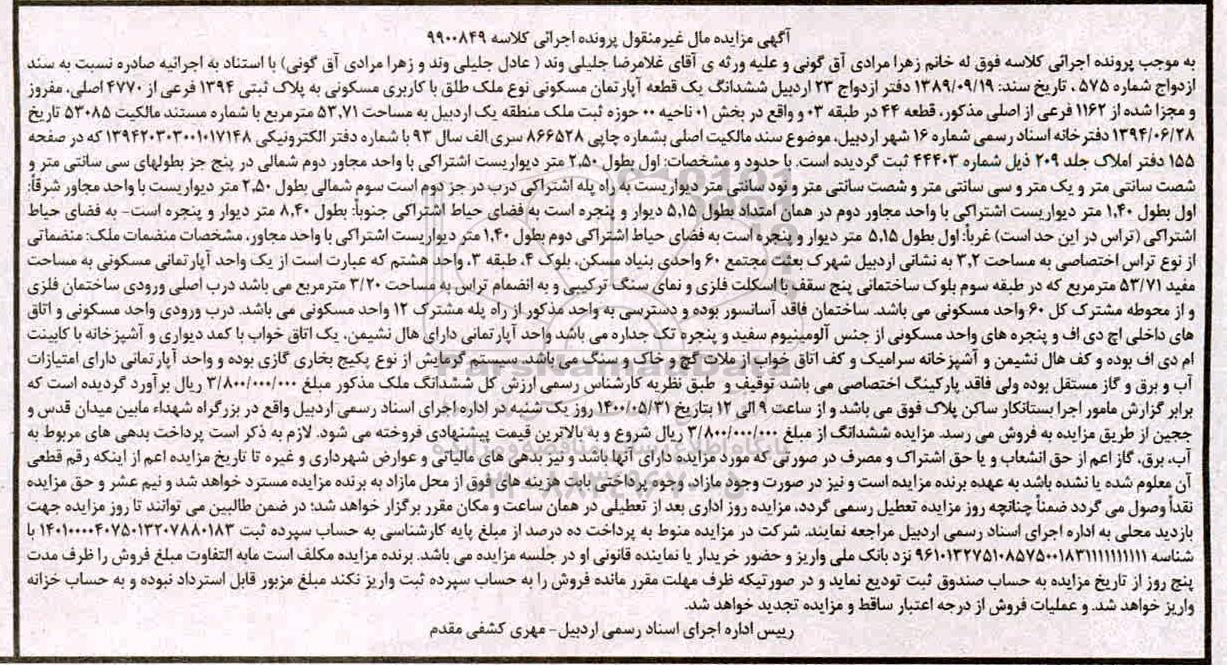 آگهی مزایده مال غیرمنقول پرونده اجرائی کلاسه ۹۹۰۰۸۴۹
به موجب پرونده اجرائی کلاسه فوق له خانم زهرا مرادی آق گونی و علیه ورثه ی آقای غلامرضا جلیلی وند ( عادل جلیلی وند و زهرا مرادی آق گونی) با استناد به اجرائیه صادره نسبت به سند
ازدواج شماره ۵۷۵ ، تاریخ سند: ۱۳۸۹/۰۹/۱۹ دفتر ازدواج ۲۳ اردبیل ششدانگ یک قطعه آپارتمان مسکونی نوع ملک طلق با کاربری مسکونی به پلاک ثبتی ۱۳۹۴ فرعی از ۴۷۷۰ اصلی، مفروز
و مجزا شده از ۱۱۶۲ فرعی از اصلی مذکور، قطعه ۴۴ در طبقه ۰۳ و واقع در بخش ۰۱ ناحیه ۰۰ حوزه ثبت ملک منطقه یک اردبیل به مساحت ۵۳,۷۱ مترمربع با شماره مستند مالکیت ۵۳۰۸۵ تاریخ
۱۳۹۴/۰۶/۲۸ دفترخانه اسناد رسمی شماره ۱۶ شهر اردبیل، موضوع سند مالکیت اصلی بشماره چاپی ۸۶۶۵۲۸ سری الف سال ۹۳ با شماره دفتر الکترونیکی ۱۳۹۴۲۰۳۰۳۰۰۱۰۱۷۱۴۸ که در صفحه
۱۵۵ دفتر املاک جلد ۲۰۹ ذیل شماره ۴۴۴۰۳ ثبت گردیده است. با حدود و مشخصات: اول بطول ۲,۵۰ متر دیواریست اشتراکی با واحد مجاور دوم شمالی در پنج جز بطولهای سی سانتی متر و
شصت سانتی متر و یک متر و سی سانتی متر و شصت سانتی متر و نود سانتی متر دیواریست به راه پله اشتراکی درب در جز دوم است سوم شمالی بطول ۲,۵۰ متر دیواریست با واحد مجاور شرقا:
اول بطول ۱,۴۰ متر دیواریست اشتراکی با واحد مجاور دوم در همان امتداد بطول ۵,۱۵ دیوار و پنجره است به فضای حیاط اشتراکی جنوبا: بطول ۸,۴۰ متر دیوار و پنجره است- به فضای حیاط
اشتراکی (تراس در این حد است) غربا: اول بطول ۵,۱۵ متر دیوار و پنجره است به فضای حیاط اشتراکی دوم بطول ۱,۴۰ متر دیواریست اشتراکی با واحد مجاور، مشخصات منضمات ملک: منضماتی
از نوع تراس اختصاصی به مساحت ۳,۲ به نشانی اردبیل شهرک بعثت مجتمع ۶۰ واحدی بنیاد مسکن، بلوک ۴، طبقه ۳، واحد هشتم که عبارت است از یک واحد آپارتمانی مسکونی به مساحت
مفید ۵۳/۷۱ مترمربع که در طبقه سوم بلوک ساختمانی پنج سقف با اسکلت فلزی و نمای سنگ ترکیبی و به انضمام تراس به مساحت ۳/۲۰ مترمربع می باشد درب اصلی ورودی ساختمان فلزی
و از محوطه مشترک کل ۶۰ واحد مسکونی می باشد. ساختمان فاقد آسانسور بوده و دسترسی به واحد مذکور از راه پله مشترک ۱۲ واحد مسکونی می باشد. درب ورودی واحد مسکونی و اتاق
های داخلی اچ دی اف و پنجره های واحد مسکونی از جنس آلومینیوم سفید و پنجره تک جداره می باشد واحد آپارتمانی دارای هال نشیمن، یک اتاق خواب با کمد دیواری و آشپزخانه با کابینت
ام دی اف بوده و کف هال نشیمن و آشپزخانه سرامیک و کف اتاق خواب از ملات گچ و خاک و سنگ می باشد. سیستم گرمایش از نوع پکیج بخاری گازی بوده و واحد آپارتمانی دارای امتیازات
آب و برق و گاز مستقل بوده ولی فاقد پارکینگ اختصاصی می باشد توقیف و طبق نظریه کارشناس رسمی ارزش کل ششدانگ ملک مذکور مبلغ ۳/۸۰۰/۰۰۰/۰۰۰ ریال برآورد گردیده است که
برابر گزارش مامور اجرا بستانکار ساکن پلاک فوق می باشد و از ساعت ۹ الی ۱۲ بتاریخ ۱۴۰۰/۰۵/۳۱ روز یک شنبه در اداره اجرای اسناد رسمی اردبیل واقع در بزرگراه شهداء مابین میدان قدس و
ججین از طریق مزایده به فروش می رسد. مزایده ششدانگ از مبلغ ۳/۸۰۰/۰۰۰/۰۰۰ ریال شروع و به بالاترین قیمت پیشنهادی فروخته می شود. لازم به ذکر است پرداخت بدهی های مربوط به
آب، برق، گاز اعم از حق انشعاب و یا حق اشتراک و مصرف در صورتی که مورد مزایده دارای آنها باشد و نیز بدهی های مالیاتی و عوارض شهرداری و غیره تا تاریخ مزایده اعم از اینکه رقم قطعی
آن معلوم شده یا نشده باشد به عهده برنده مزایده است و نیز در صورت وجود مازاد، وجوه پرداختی بابت هزینه های فوق از محل مازاد به برنده مزایده مسترد خواهد شد و نیم عشر و حق مزایده
نقداً وصول می گردد ضمناً چنانچه روز مزایده تعطیل رسمی گردد، مزایده روز اداری بعد از تعطیلی در همان ساعت و مکان مقرر برگزار خواهد شد؛ در ضمن طالبین می توانند تا روز مزایده جهت
بازدید محلی به اداره اجرای اسناد رسمی اردبیل مراجعه نمایند. شرکت در مزایده منوط به پرداخت ده درصد از مبلغ پایه کارشناسی به حساب سپرده ثبت ۱۴۰۱۰۰۰۰۴۰۷۵۰۱۳۲۰۷۸۸۰۱۸۳ با
شناسه ۹۶۱۰۱۳۲۷۵۱۰۸۵۷۵۰۰۱۸۳۱۱۱۱۱۱۱۱۱۱۱ نزد بانک ملی واریز و حضور خریدار یا نماینده قانونی او در جلسه مزایده می باشد. برنده مزایده مکلف است مابه التفاوت مبلغ فروش را ظرف مدت
پنج روز از تاریخ مزایده به حساب صندوق ثبت تودیع نماید و در صورتیکه ظرف مهلت مقرر مانده فروش را به حساب سپرده ثبت واریز نکند مبلغ مزبور قابل استرداد نبوده و به حساب خزانه
واریز خواهد شد. و عملیات فروش از درجه اعتبار ساقط و مزایده تجدید خواهد شد.
رییس اداره اجرای اسناد رسمی اردبیل- مهری کشفی مقدم
ParsNamadData